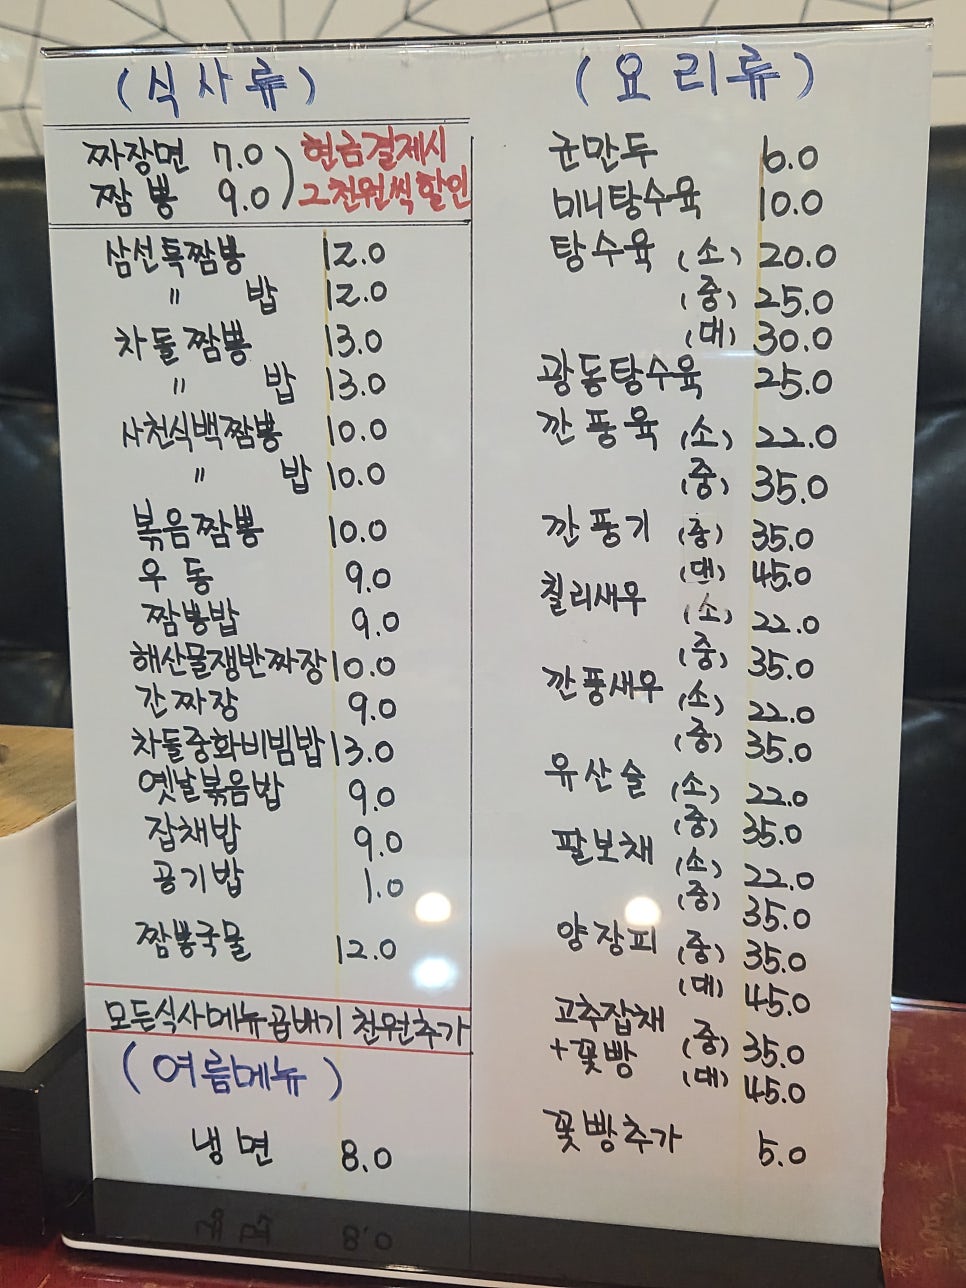 (식사류)
짜장면 7.0
짬뽕 9.0
현금결제시
그 천원씩 할인
삼선특짬뽕 12.0
〃 밥 12.0
차돌짬뽕 13.0
〃 밥 13.0
사천식백짬뽕 10.0
〃 밥 10.0
볶음짬뽕 10.0
우동 9.0
짬뽕밥 9.0
해산물쟁반짜장 10.0
간짜장 9.0
차돌중화비빔밥 13.0
옛날볶음밥 9.0
잡채밥 9.0
공기밥 1.0
짬뽕국물 12.0
모든식사메뉴곱배기 천원추가
(여름메뉴)
냉면 8.0
(요리류)
군만두 6.0
미니탕수육 10.0
탕수육 (소) 20.0
(중) 25.0
(대) 30.0
광동탕수육 25.0
깐풍육 (소) 22.0
(중) 35.0
깐풍기 (중) 35.0
(대) 45.0
칠리새우 (소) 22.0
(중) 35.0
깐풍새우 (소) 22.0
(중) 35.0
유산슬 (소) 22.0
(중) 35.0
팔보채 (소) 22.0
(중) 35.0
양장피 (중) 35.0
(대) 45.0
고추잡채
+꽃빵 (중) 35.0
(대) 45.0
꽃빵추가 5.0